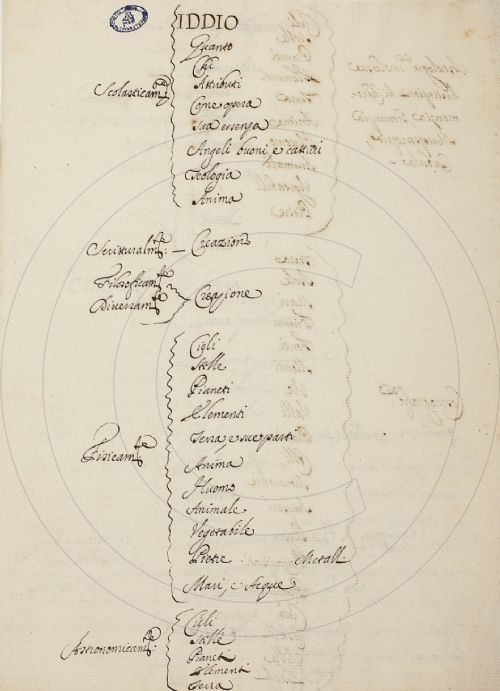 IDDIO
Quanto
Chi
Attributi
Scolasticam.te
Come opera
sua essenza
Angeli buoni, e cattivi
Teologia
Anima
Scritturalm.te: – Creazion
Filosoficam.te
Diversam.te
Creazione
Cieli
Stelle
Pianeti
Elementi
Terra, e sue parti
Fisicam.te
Anima
Huomo
Animale
Vegetabile
Pietre Metall.
Mari, e Acque
Cieli
Stelle
Astronomicam.te:
Pianeti
Elementi
Terra